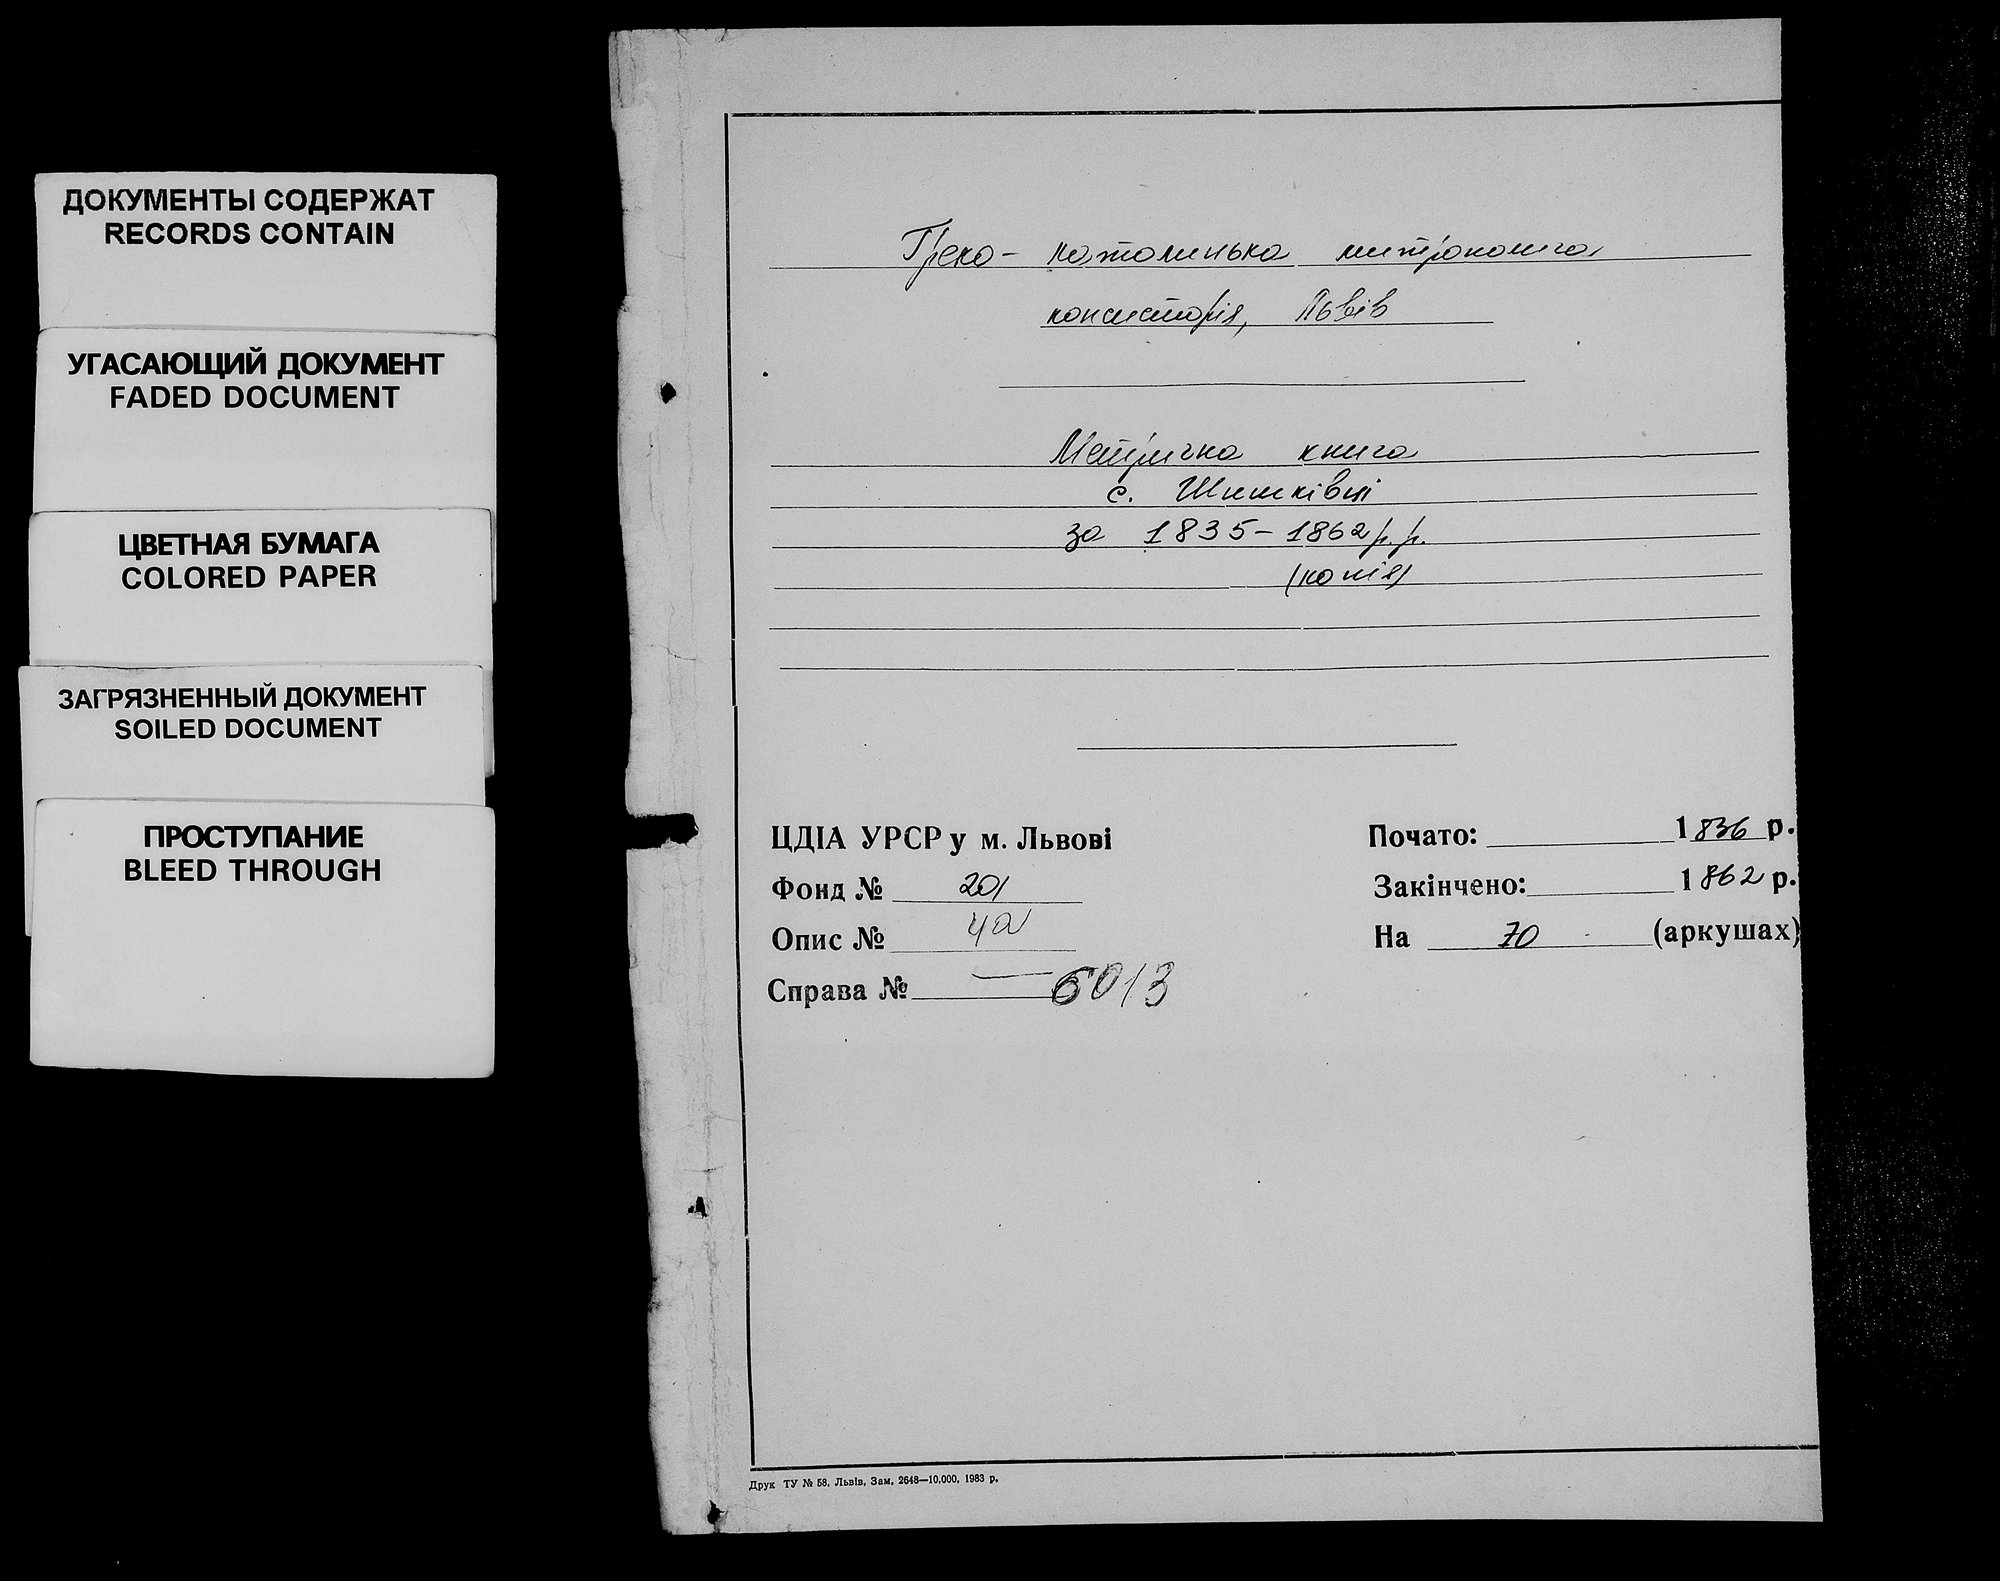 ДОКУМЕНТЫ СОДЕРЖАТ
RECORDS CONTAIN
УГАСАЮЩИЙ ДОКУМЕНТ
FADED DOCUMENT
ЦВЕТНАЯ БУМАГА
COLORED PAPER
ЗАГРЯЗНЕННЫЙ ДОКУМЕНТ
SOILED DOCUMENT
ПРОСТУПАНИЕ
BLEED THROUGH
Греко- католицька митрополича
консисторія, Львів
Метрична книга
с. Шишківці
за 1835-1862 р.р.
(копія)
ЦДІА УРСР у м. Львові
Фонд № 201
Опис № 4а
Справа № 6013
Почато: 1836 р.
Закінчено: 1862 р.
На 70 (аркушах)
Друк ТУ № 58, Львів, Зам. 2648—10.000. 1983 р.